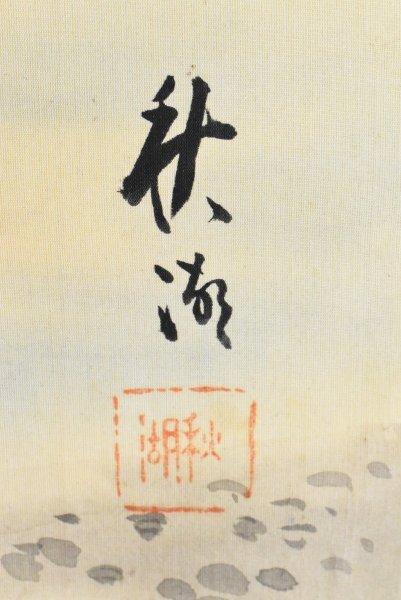 秋
湖
秋湖